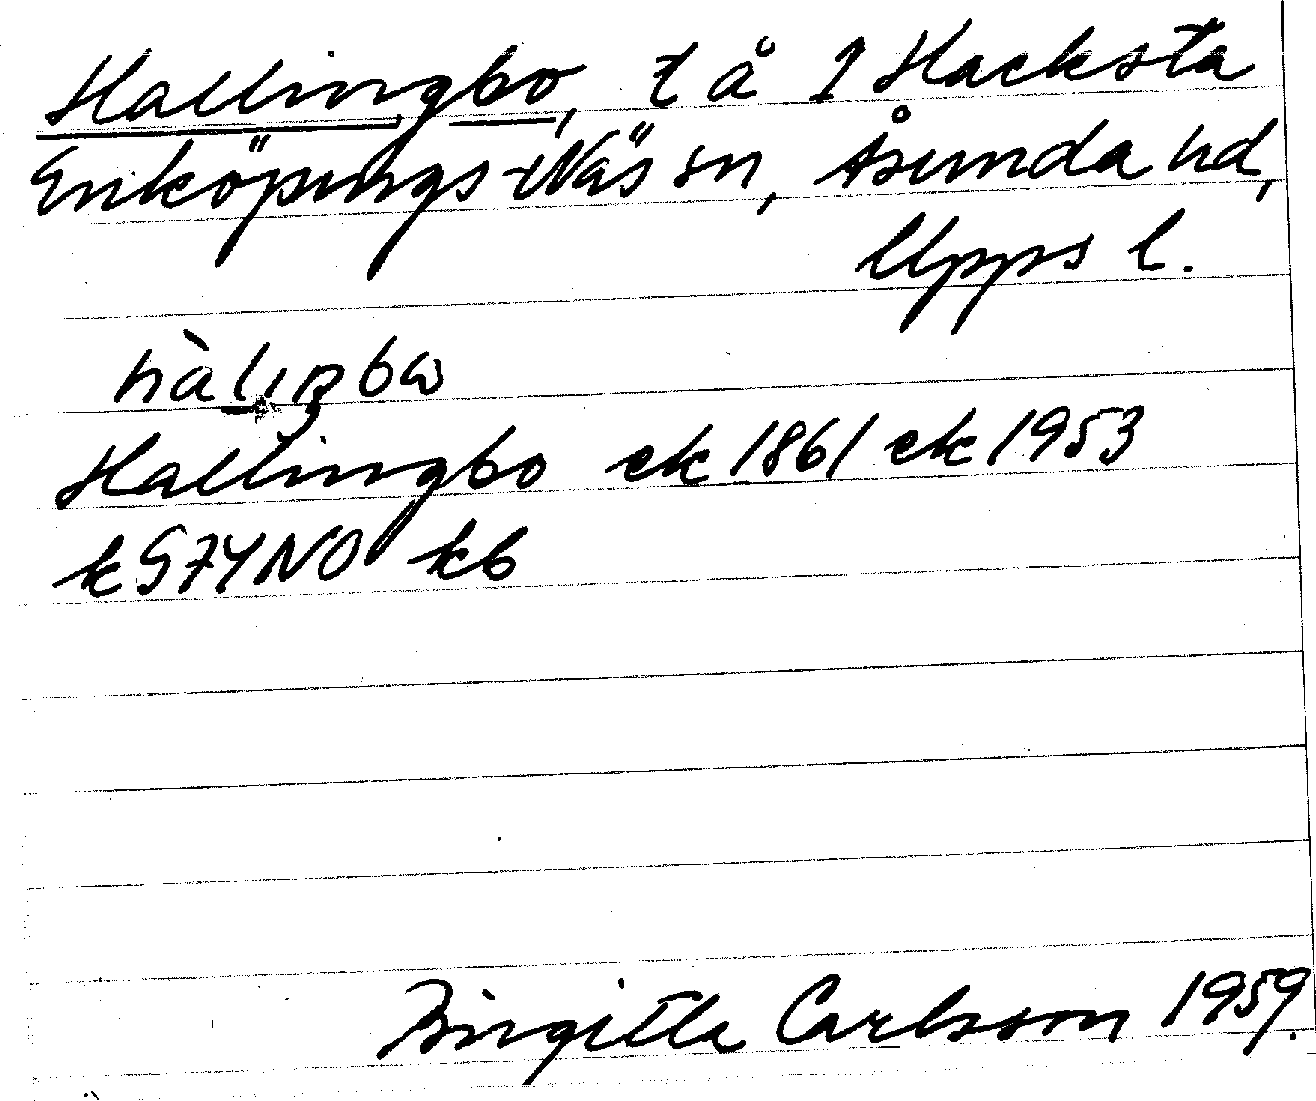 Hallingbo, t å 1 Hacksta
Enköpings-Näs sn, Åsunda hd,
Upps l.
hàlıŋbω
Hallingbo ek 1861 ek 1953
k S74NO kb
Birgitta Carlsson 1959.